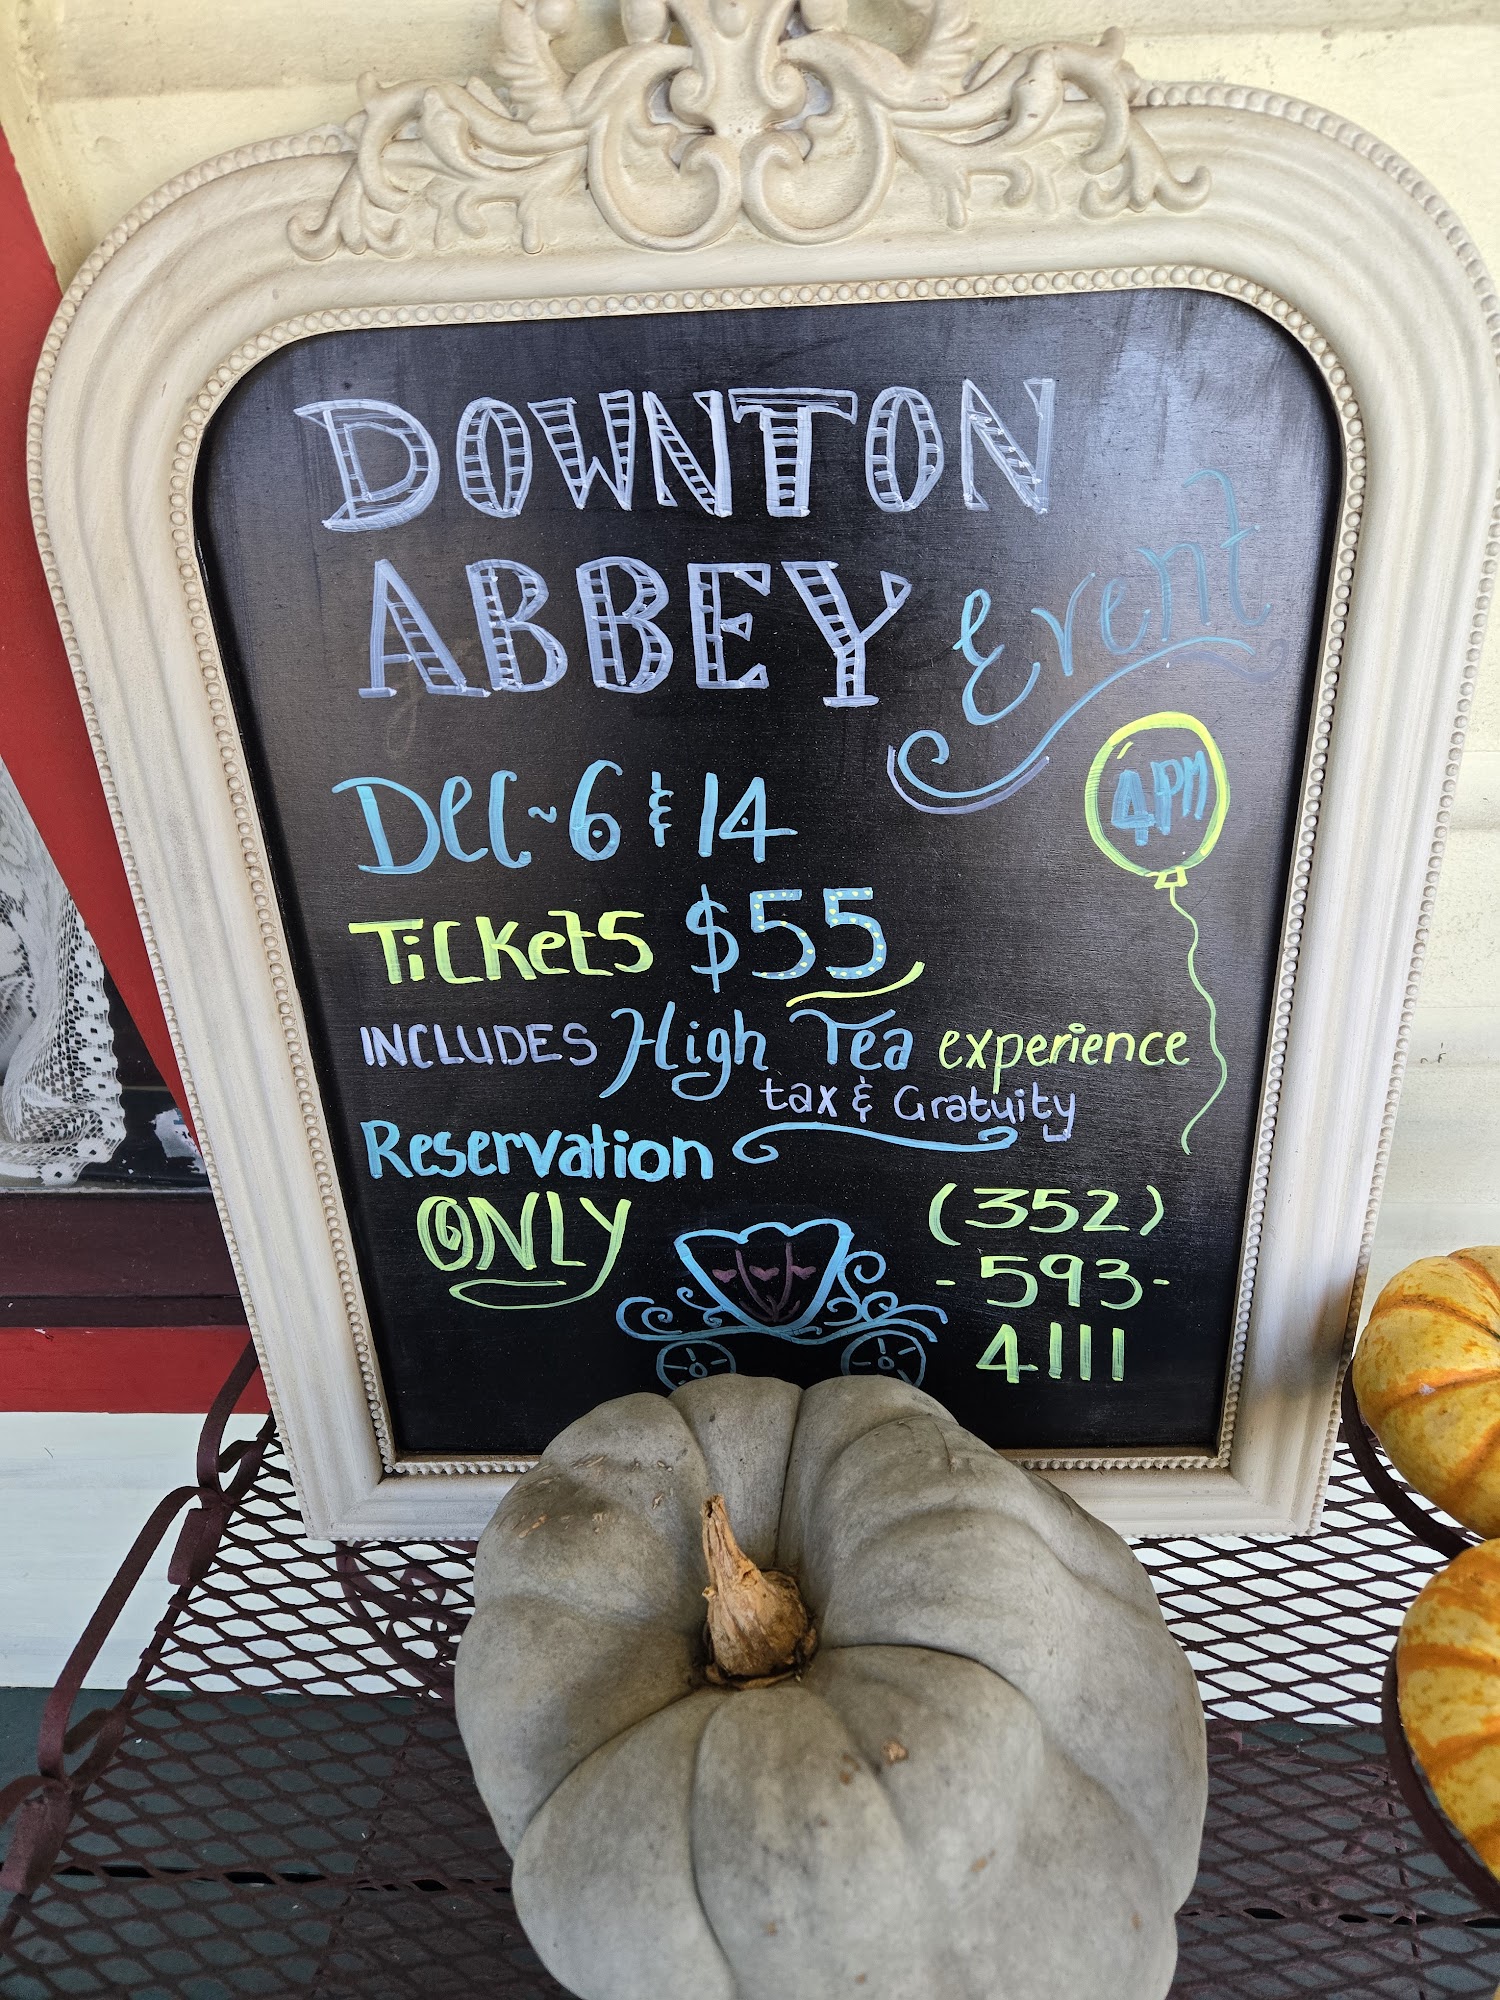 DOWNTON
ABBEY Event
4PM
Dec ~ 6 & 14
Tickets $55
INCLUDES High Tea experience
tax & Gratuity
Reservation
ONLY
(352)
- 593 -
4111